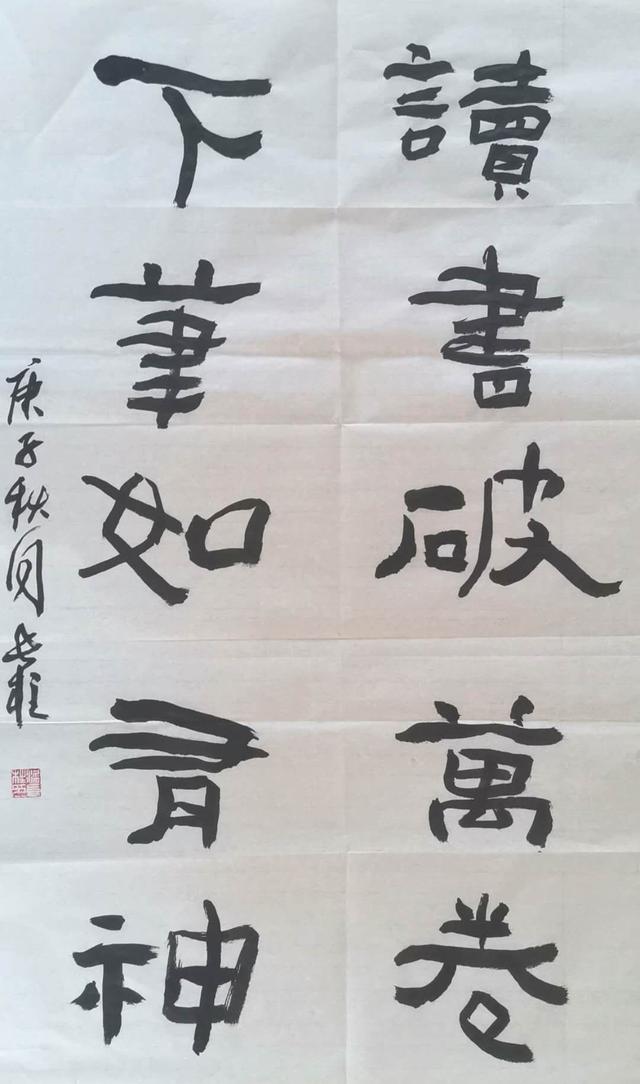 讀書破萬卷
下筆如有神
庚子秋月